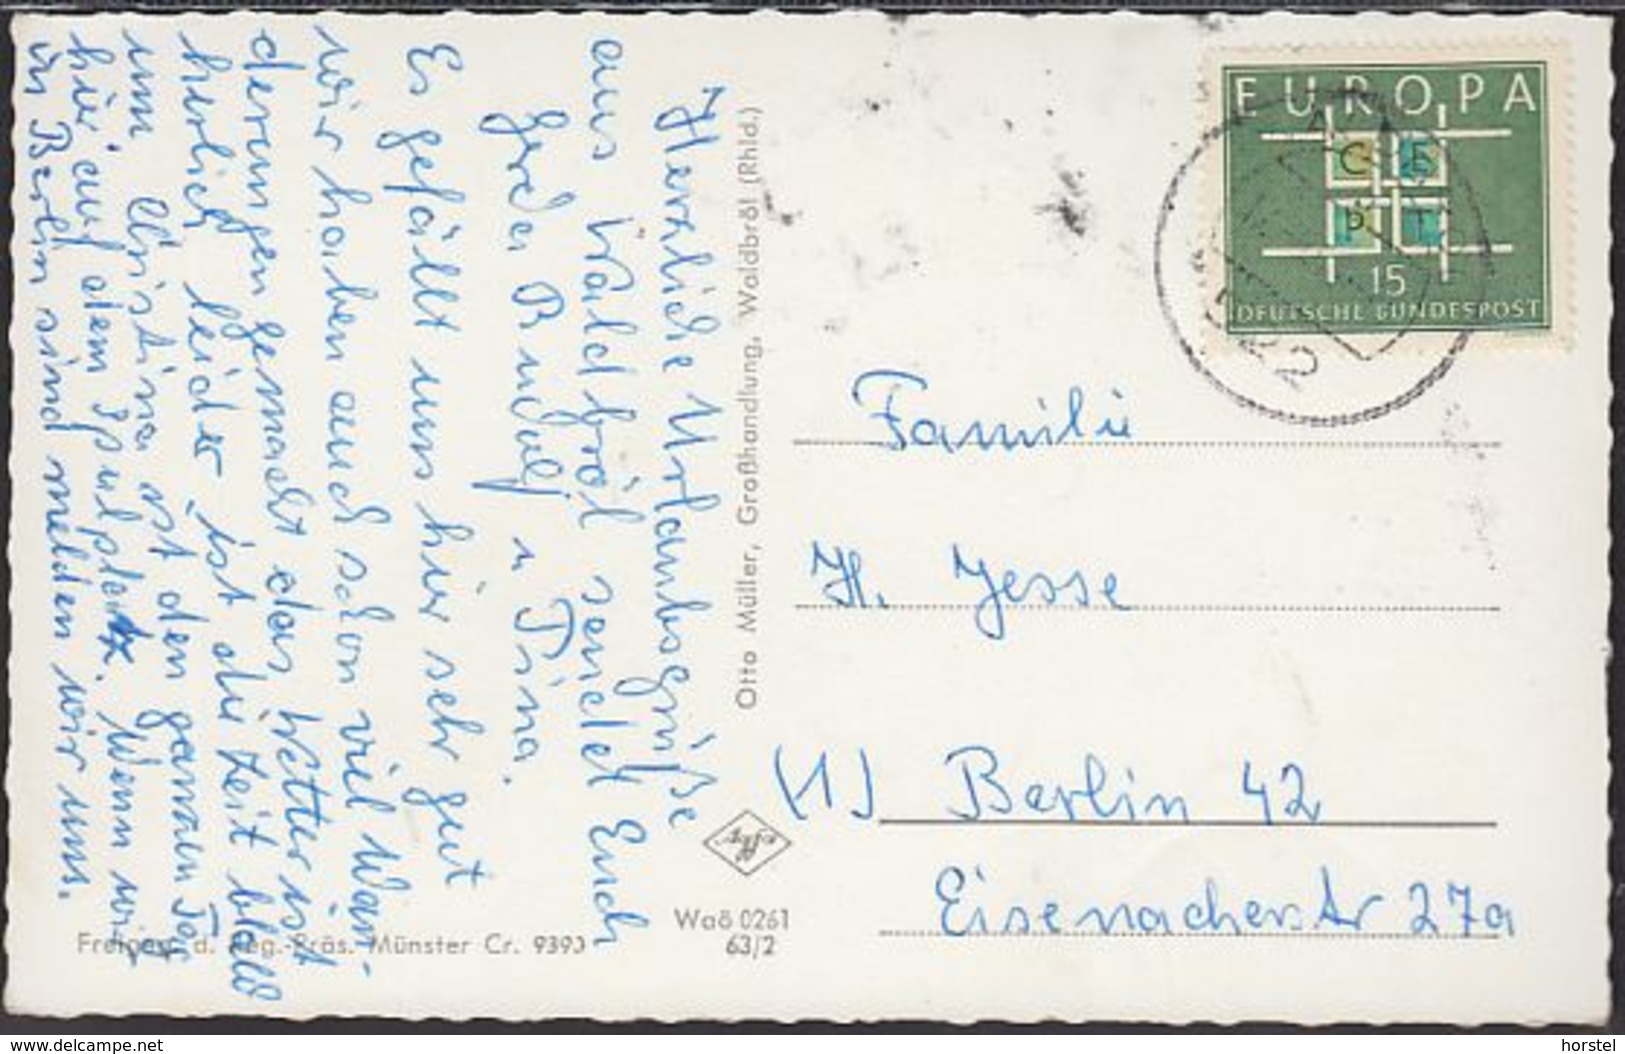 Herzliche Urlaubsgrüße
aus Waldbröl sendet Euch
Gerda Rudolf u Tina.
Es gefällt uns hier sehr gut
wir haben auch schon viel Wan-
derungen gemacht das Wetter ist
herlich, leider ist die Zeit bald
um Christina ist den ganzen Tag
hier auf dem Spielplatz. Wenn wir
in Berlin sind melden wir uns.
Otto Müller, Großhandlung, Waldbröl (Rhld.)
EUROPA
CE
PT
15
DEUTSCHE BUNDESPOST
22
Familie
H. Jesse
(1) Berlin 42
Eisenacherstr 27a
Agfa
Waö 0261
63/2
Freigeg. d. Reg.-Präs. Münster Cr. 9393
www.delcampe.net
horstel